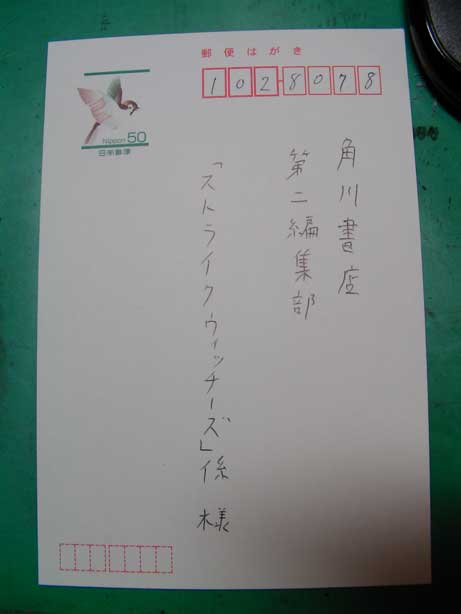 郵便はがき
102-8078
Nippon 50
日本郵便
角川書店
第二編集部
「ストライクウィッチーズ」係 様